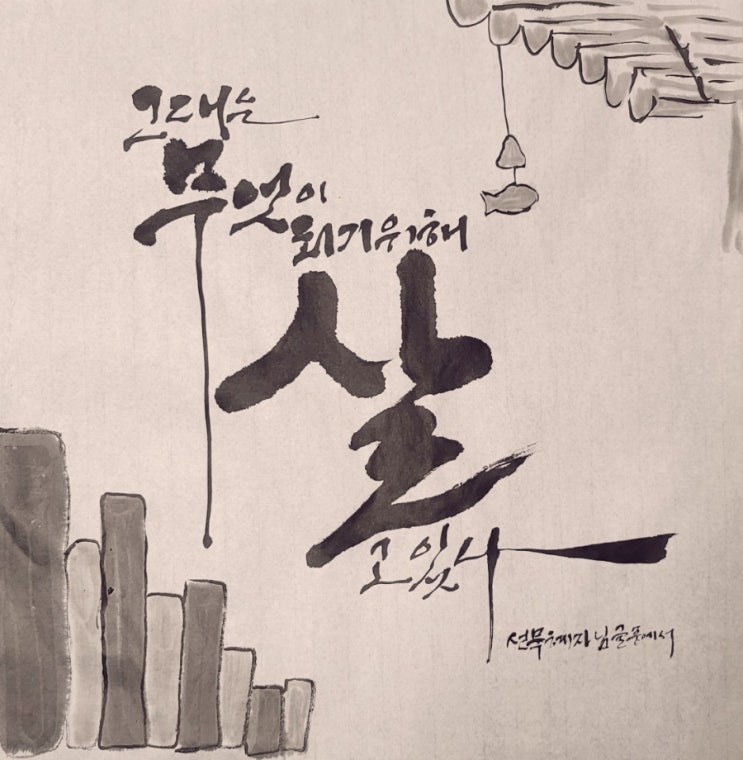 그대는
무엇이
되기위해
살
고 있나
선무 제자님 글 중에서